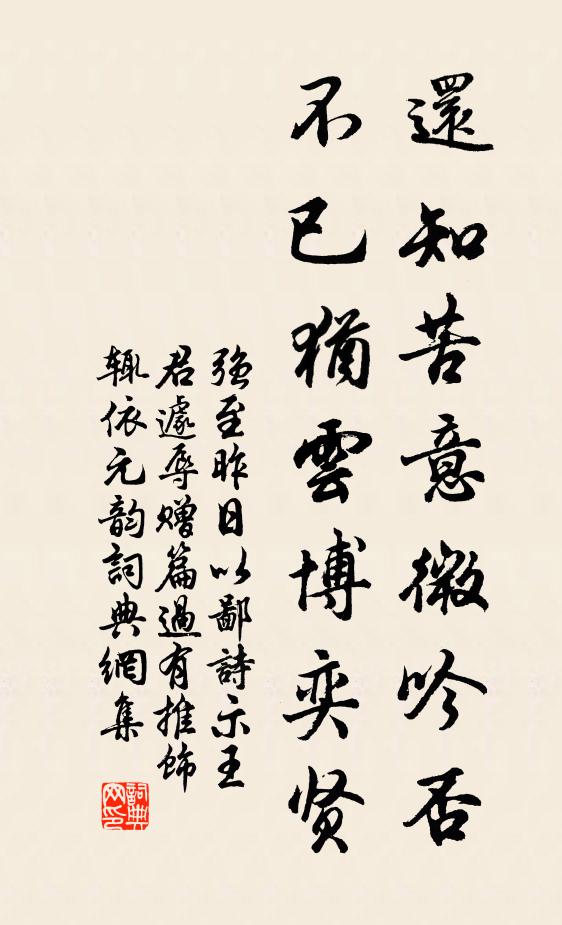 還知苦意微吟否
不已猶雲博奕贤
强至昨日以鄙詩示王
君遽辱赠篇過有推飾
輒依元韵詞典網集
詞典网印